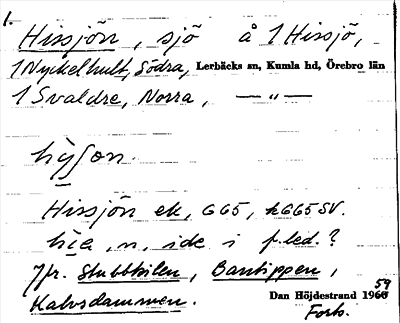 1.
Hissjön, sjö å 1 Hissjö,
1 Nyckelhult, Södra, Lerbäcks sn, Kumla hd, Örebro län
1 Svaldre, Norra, — „ —
Hissjön ek, G65, hG65SV.
, n, ide i f.led.?
Jfr. Stubbkilen, Bantippen,
Kalvsdammen.
Dan Höjdestrand 1960 59
Forts.